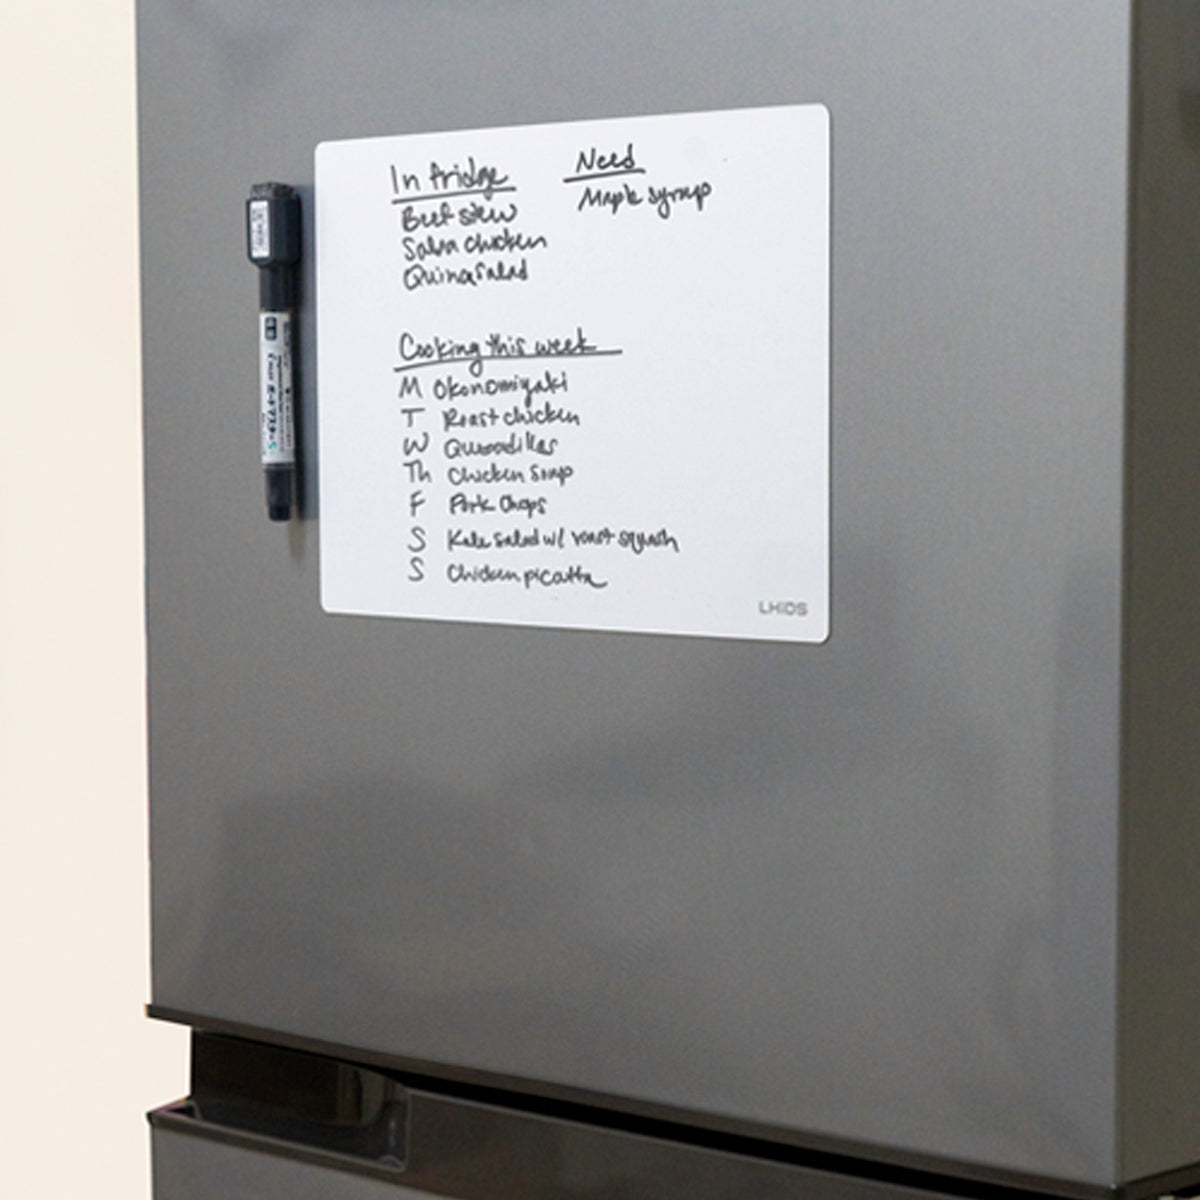 In fridge
Beef stew
Salsa chicken
Quinoa salad
Need
Maple syrup
Cooking this week
M Okonomiyaki
T Roast chicken
W Quesadillas
Th Chicken Soup
F Pork Chops
S Kale Salad w/ roast squash
S Chicken picatta
LHiDS